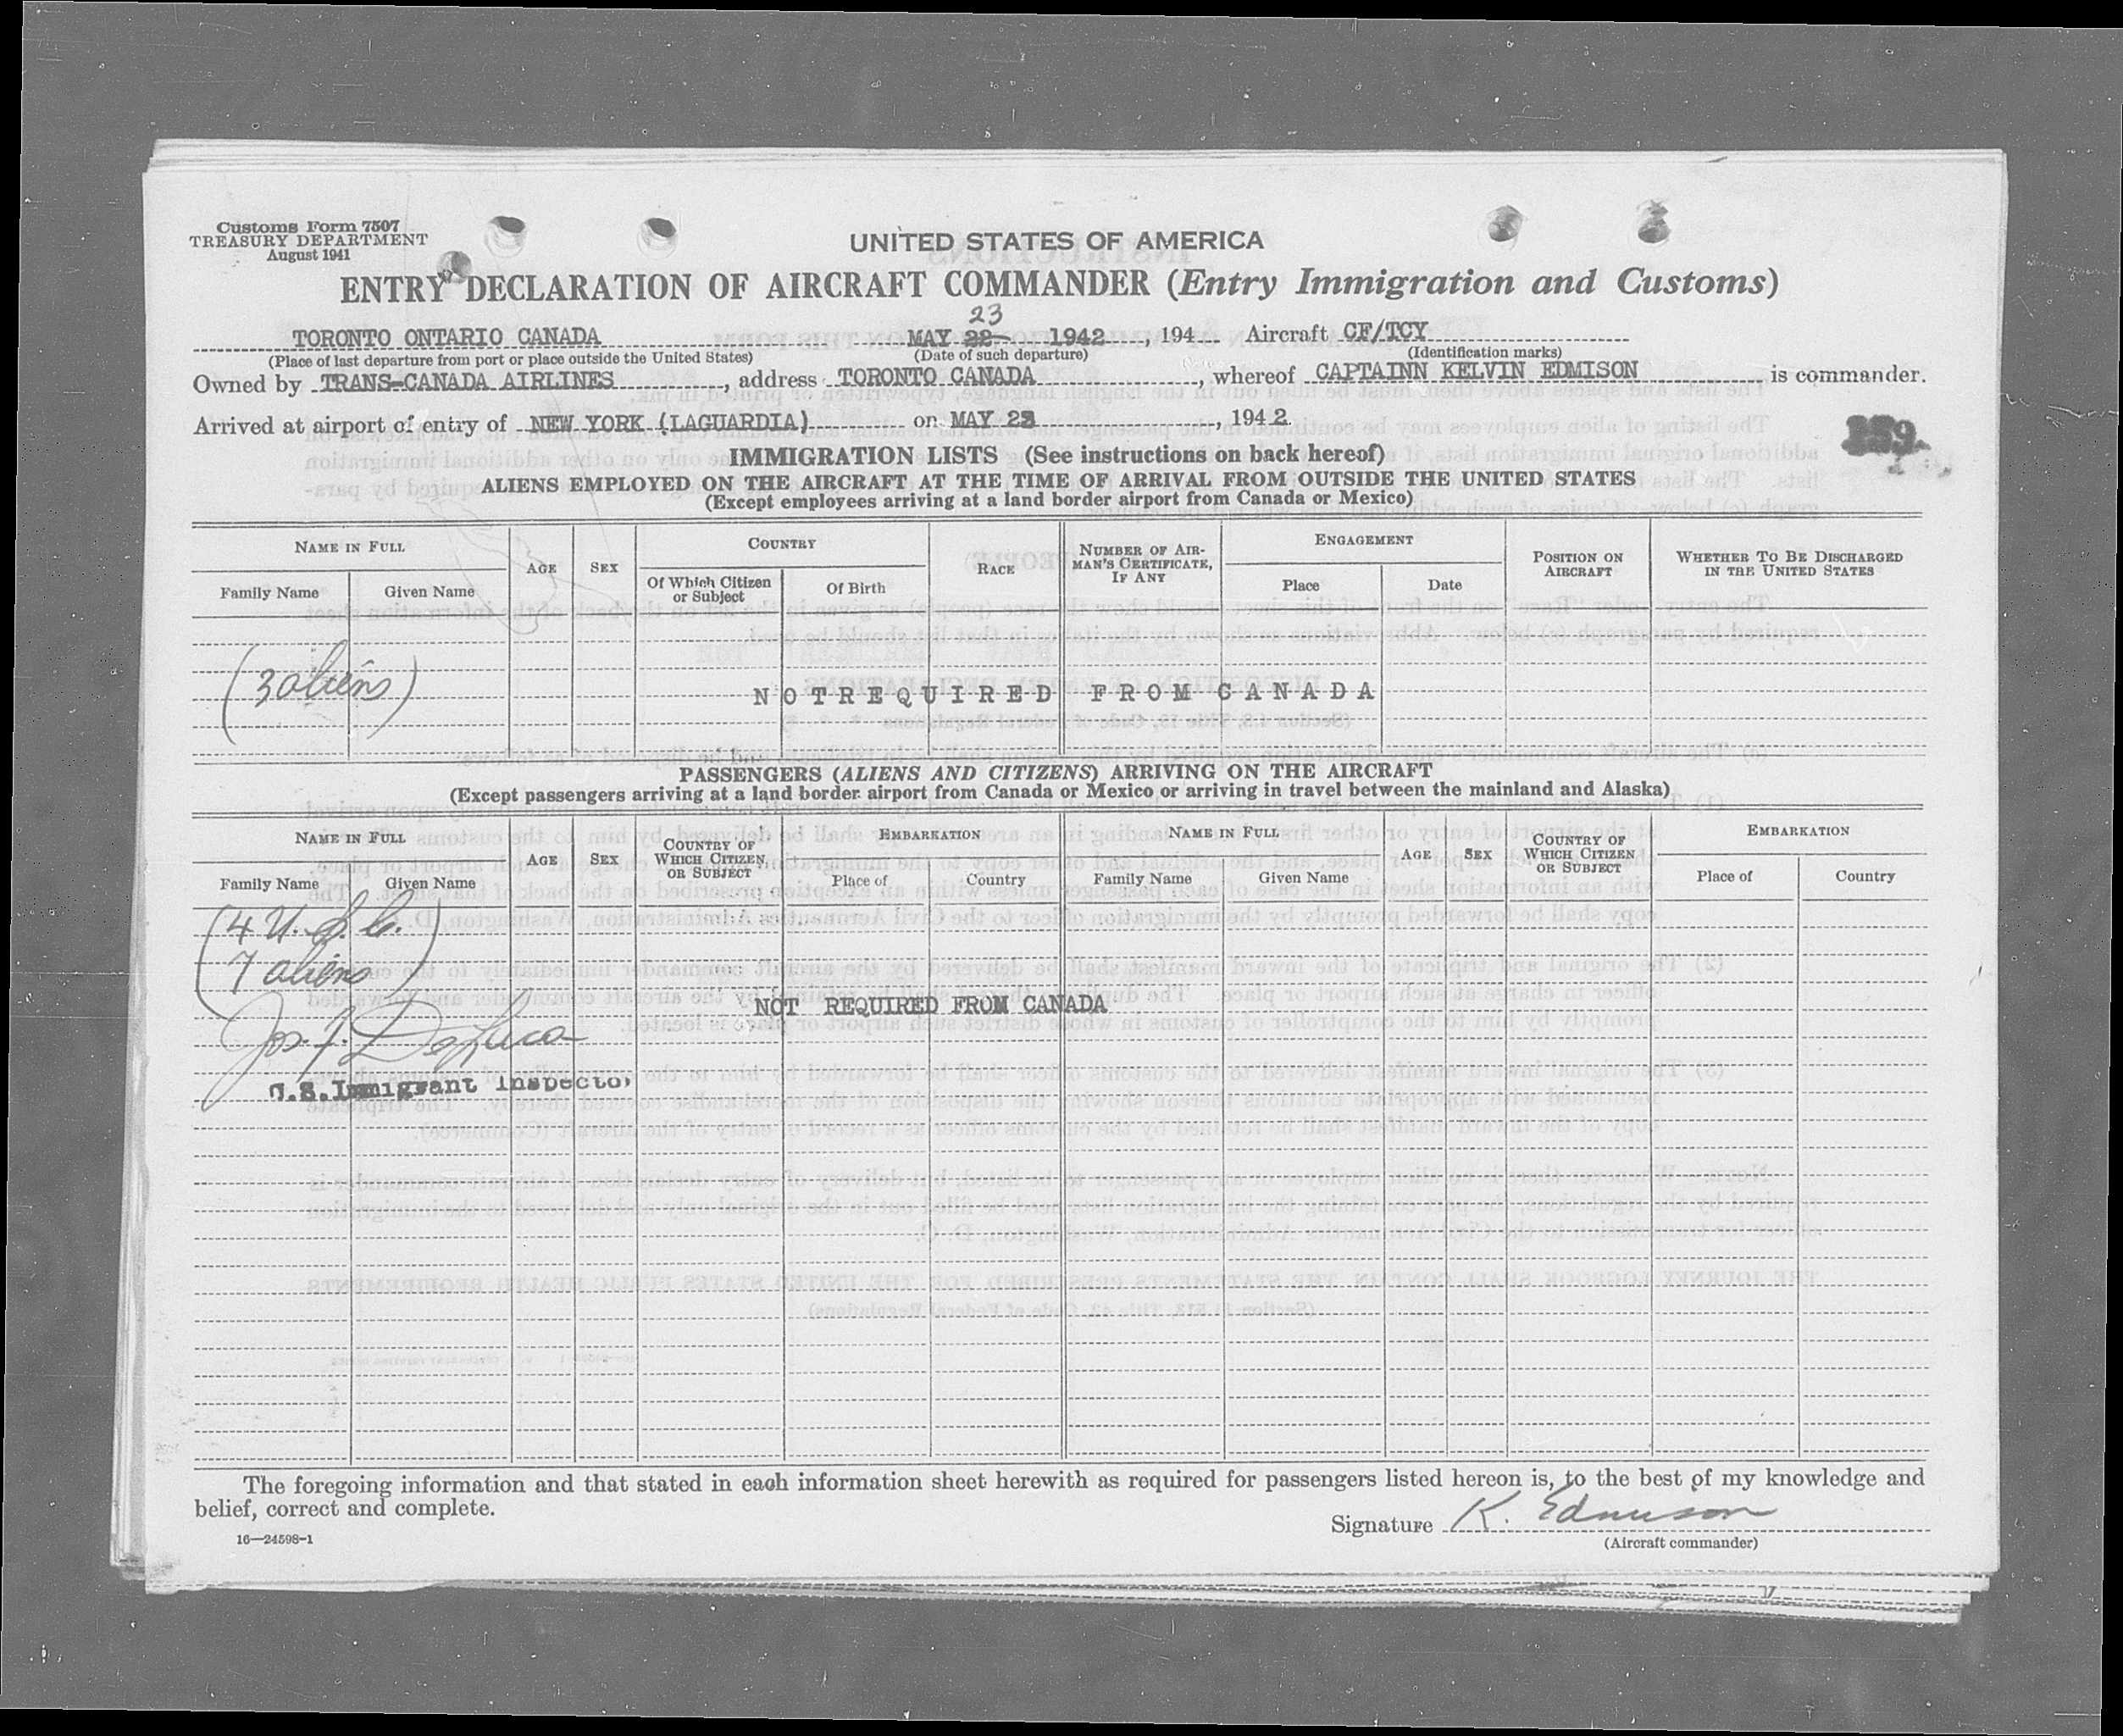 Customs Form 7507
TREASURY DEPARTMENT
August 1941
UNITED STATES OF AMERICA
ENTRY DECLARATION OF AIRCRAFT COMMANDER (Entry Immigration and Customs)
23
TORONTO ONTARIO CANADA MAY 22 1942, 194 Aircraft CF/TCY
(Place of last departure from port or place outside the United States) (Date of such departure) (Identification marks)
Owned by TRANS-CANADA AIRLINES, address TORONTO CANADA, whereof CAPTAINN KELVIN EDMISON is commander.
Arrived at airport of entry of NEW YORK (LAGUARDIA) on MAY 23, 1942
159
IMMIGRATION LISTS (See instructions on back hereof)
ALIENS EMPLOYED ON THE AIRCRAFT AT THE TIME OF ARRIVAL FROM OUTSIDE THE UNITED STATES
(Except employees arriving at a land border airport from Canada or Mexico)
NAME IN FULL AGE SEX COUNTRY RACE NUMBER OF AIRMAN'S CERTIFICATE, IF ANY ENGAGEMENT POSITION ON AIRCRAFT WHETHER TO BE DISCHARGED IN THE UNITED STATES
Family Name Given Name Of Which Citizen or Subject Of Birth Place Date
(3 aliens)
NOT REQUIRED FROM CANADA
PASSENGERS (ALIENS AND CITIZENS) ARRIVING ON THE AIRCRAFT
(Except passengers arriving at a land border airport from Canada or Mexico or arriving in travel between the mainland and Alaska)
NAME IN FULL AGE SEX COUNTRY OF WHICH CITIZEN OR SUBJECT EMBARKATION NAME IN FULL AGE SEX COUNTRY OF WHICH CITIZEN OR SUBJECT EMBARKATION
Family Name Given Name Place of Country Family Name Given Name Place of Country
(4 U.S.C.
7 aliens)
NOT REQUIRED FROM CANADA
Jos. J. DeLuca
U.S. Immigrant Inspector
The foregoing information and that stated in each information sheet herewith as required for passengers listed hereon is, to the best of my knowledge and
belief, correct and complete.
Signature K. Edmison
16—24598-1
(Aircraft commander)